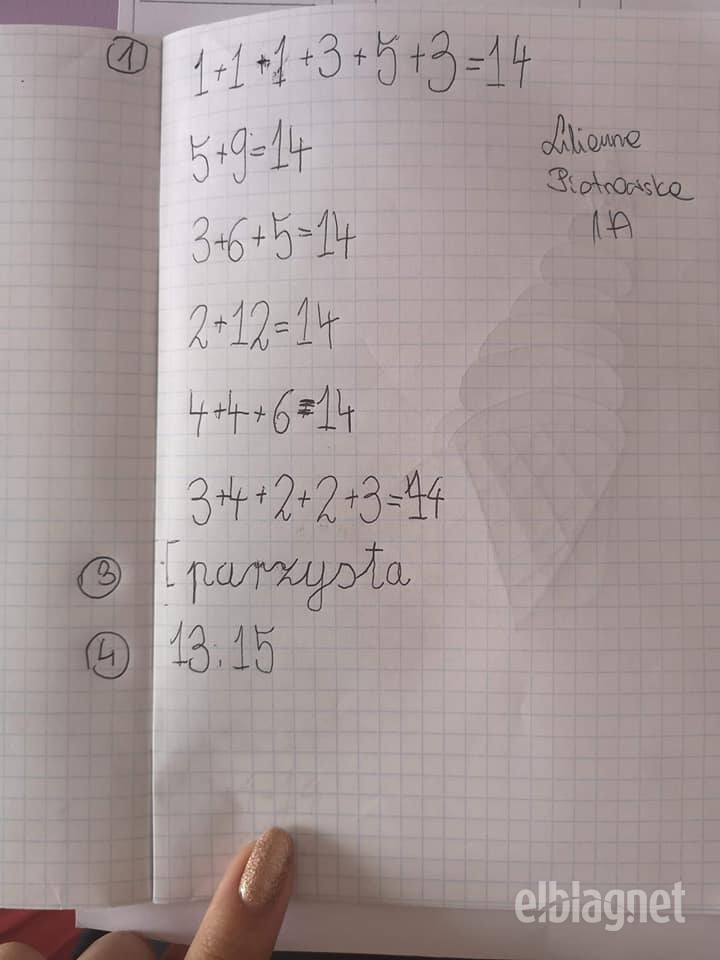 1 1+1+1+3+5+3=14
5+9=14
Lilianna
Piotrowska
1A
3+6+5=14
2+12=14
4+4+6=14
3+4+2+2+3=14
3 parzysta
4 13:15
elblag.net